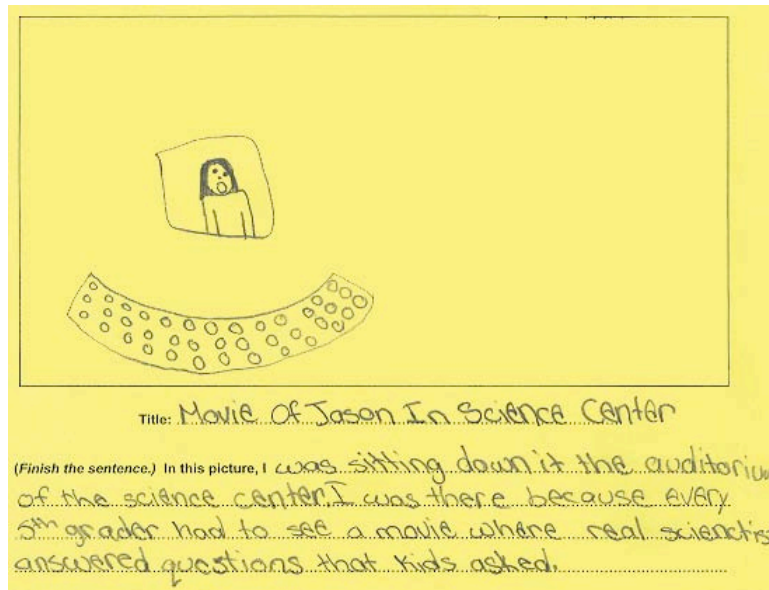 Title: Movie Of Jason In Science Center
(Finish the sentence.) In this picture, I was sitting down it the auditorium
of the science center. I was there because every
5th grader had to see a movie where real scienctis
answered questions that kids asked.